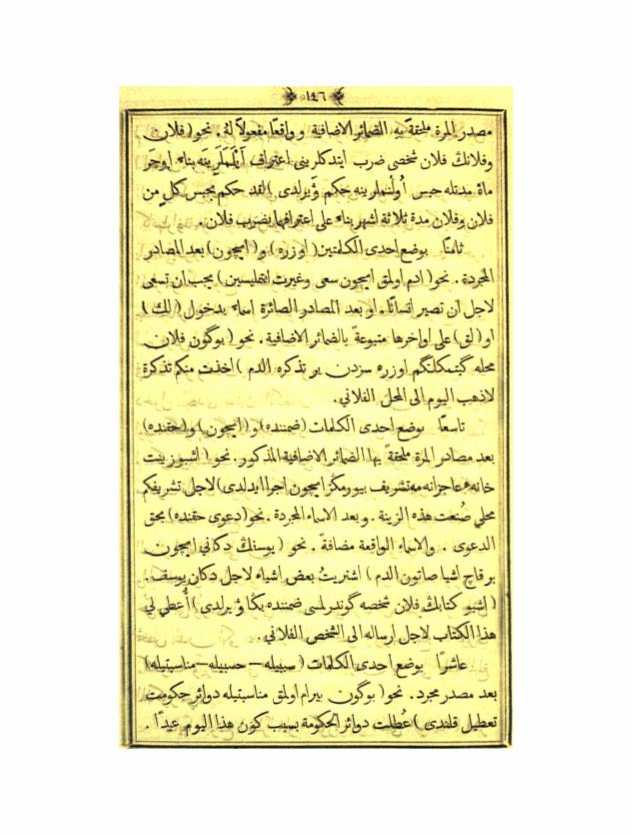 ١٤٦
مصدر المرة ملحقة به الضمائر الاضافية وواقعا مفعولا له . نحو ( فلان
وفلانك فلان شخصى ضرب ايتدكلرينى اعتراف ايلملرينه بناء اوچر
ماه مدتله حبس اولنملرينه حكم ويرلدى ) لقد حكم بحبس كل من
فلان وفلان مدة ثلاثة اشهر بناء على اعترافهما بضرب فلان
ثامنًا بوضع احدى الكلمتين ( اوزره ) و ( ايچون ) بعد المصادر
المجردة . نحو ( ادم اولمق ايچون سعى وغيرت ايتمليسين ) يجب ان تسعى
لاجل ان تصير انسانًا . او بعد المصادر الصائرة اسماء بدخول ( لك )
او ( لق ) على اواخرها متبوعة بالضمائر الاضافية . نحو ( بوگون فلان
محله گيتمكلگم اوزره سزدن بر تذكره الدم ) اخذت منكم تذكرة
لاذهب اليوم الى المحل الفلاني .
تاسعًا بوضع احدى الكلمات ( ضمننده ) و ( ايچون ) و ( حقنده )
بعد مصادر المرة ملحقة بها الضمائر الاضافية المذكور . نحو ( اشبو زينت
خانهء عاجزانه مه تشريف بيورمكز ايچون اجرا ايدلدى ) لاجل تشريفكم
محلي صُنعت هذه الزينة . وبعد الاسماء المجردة . نحو ( دعوى حقنده ) بحق
الدعوى . والاسماء الواقعة مضافة . نحو ( يوسفك دكانى ايچون
بر قاچ اشيا صاتون الدم ) اشتريتُ بعض اشياء لاجل دكان يوسف .
( اشبو كتابك فلان شخصه گوندرلمسى ضمننده بكا ويرلدى ) أُعطي لي
هذا الكتاب لاجل ارساله الى الشخص الفلاني .
عاشرًا بوضع احدى الكلمات ( سببيله – حسبيله – مناسبتيله )
بعد مصدر مجرد . نحو ( بوگون بيرام اولمق مناسبتيله دوائر حكومت
تعطيل قلندى ) عُطلت دوائر الحكومة بسبب كون هذا اليوم عيدًا .